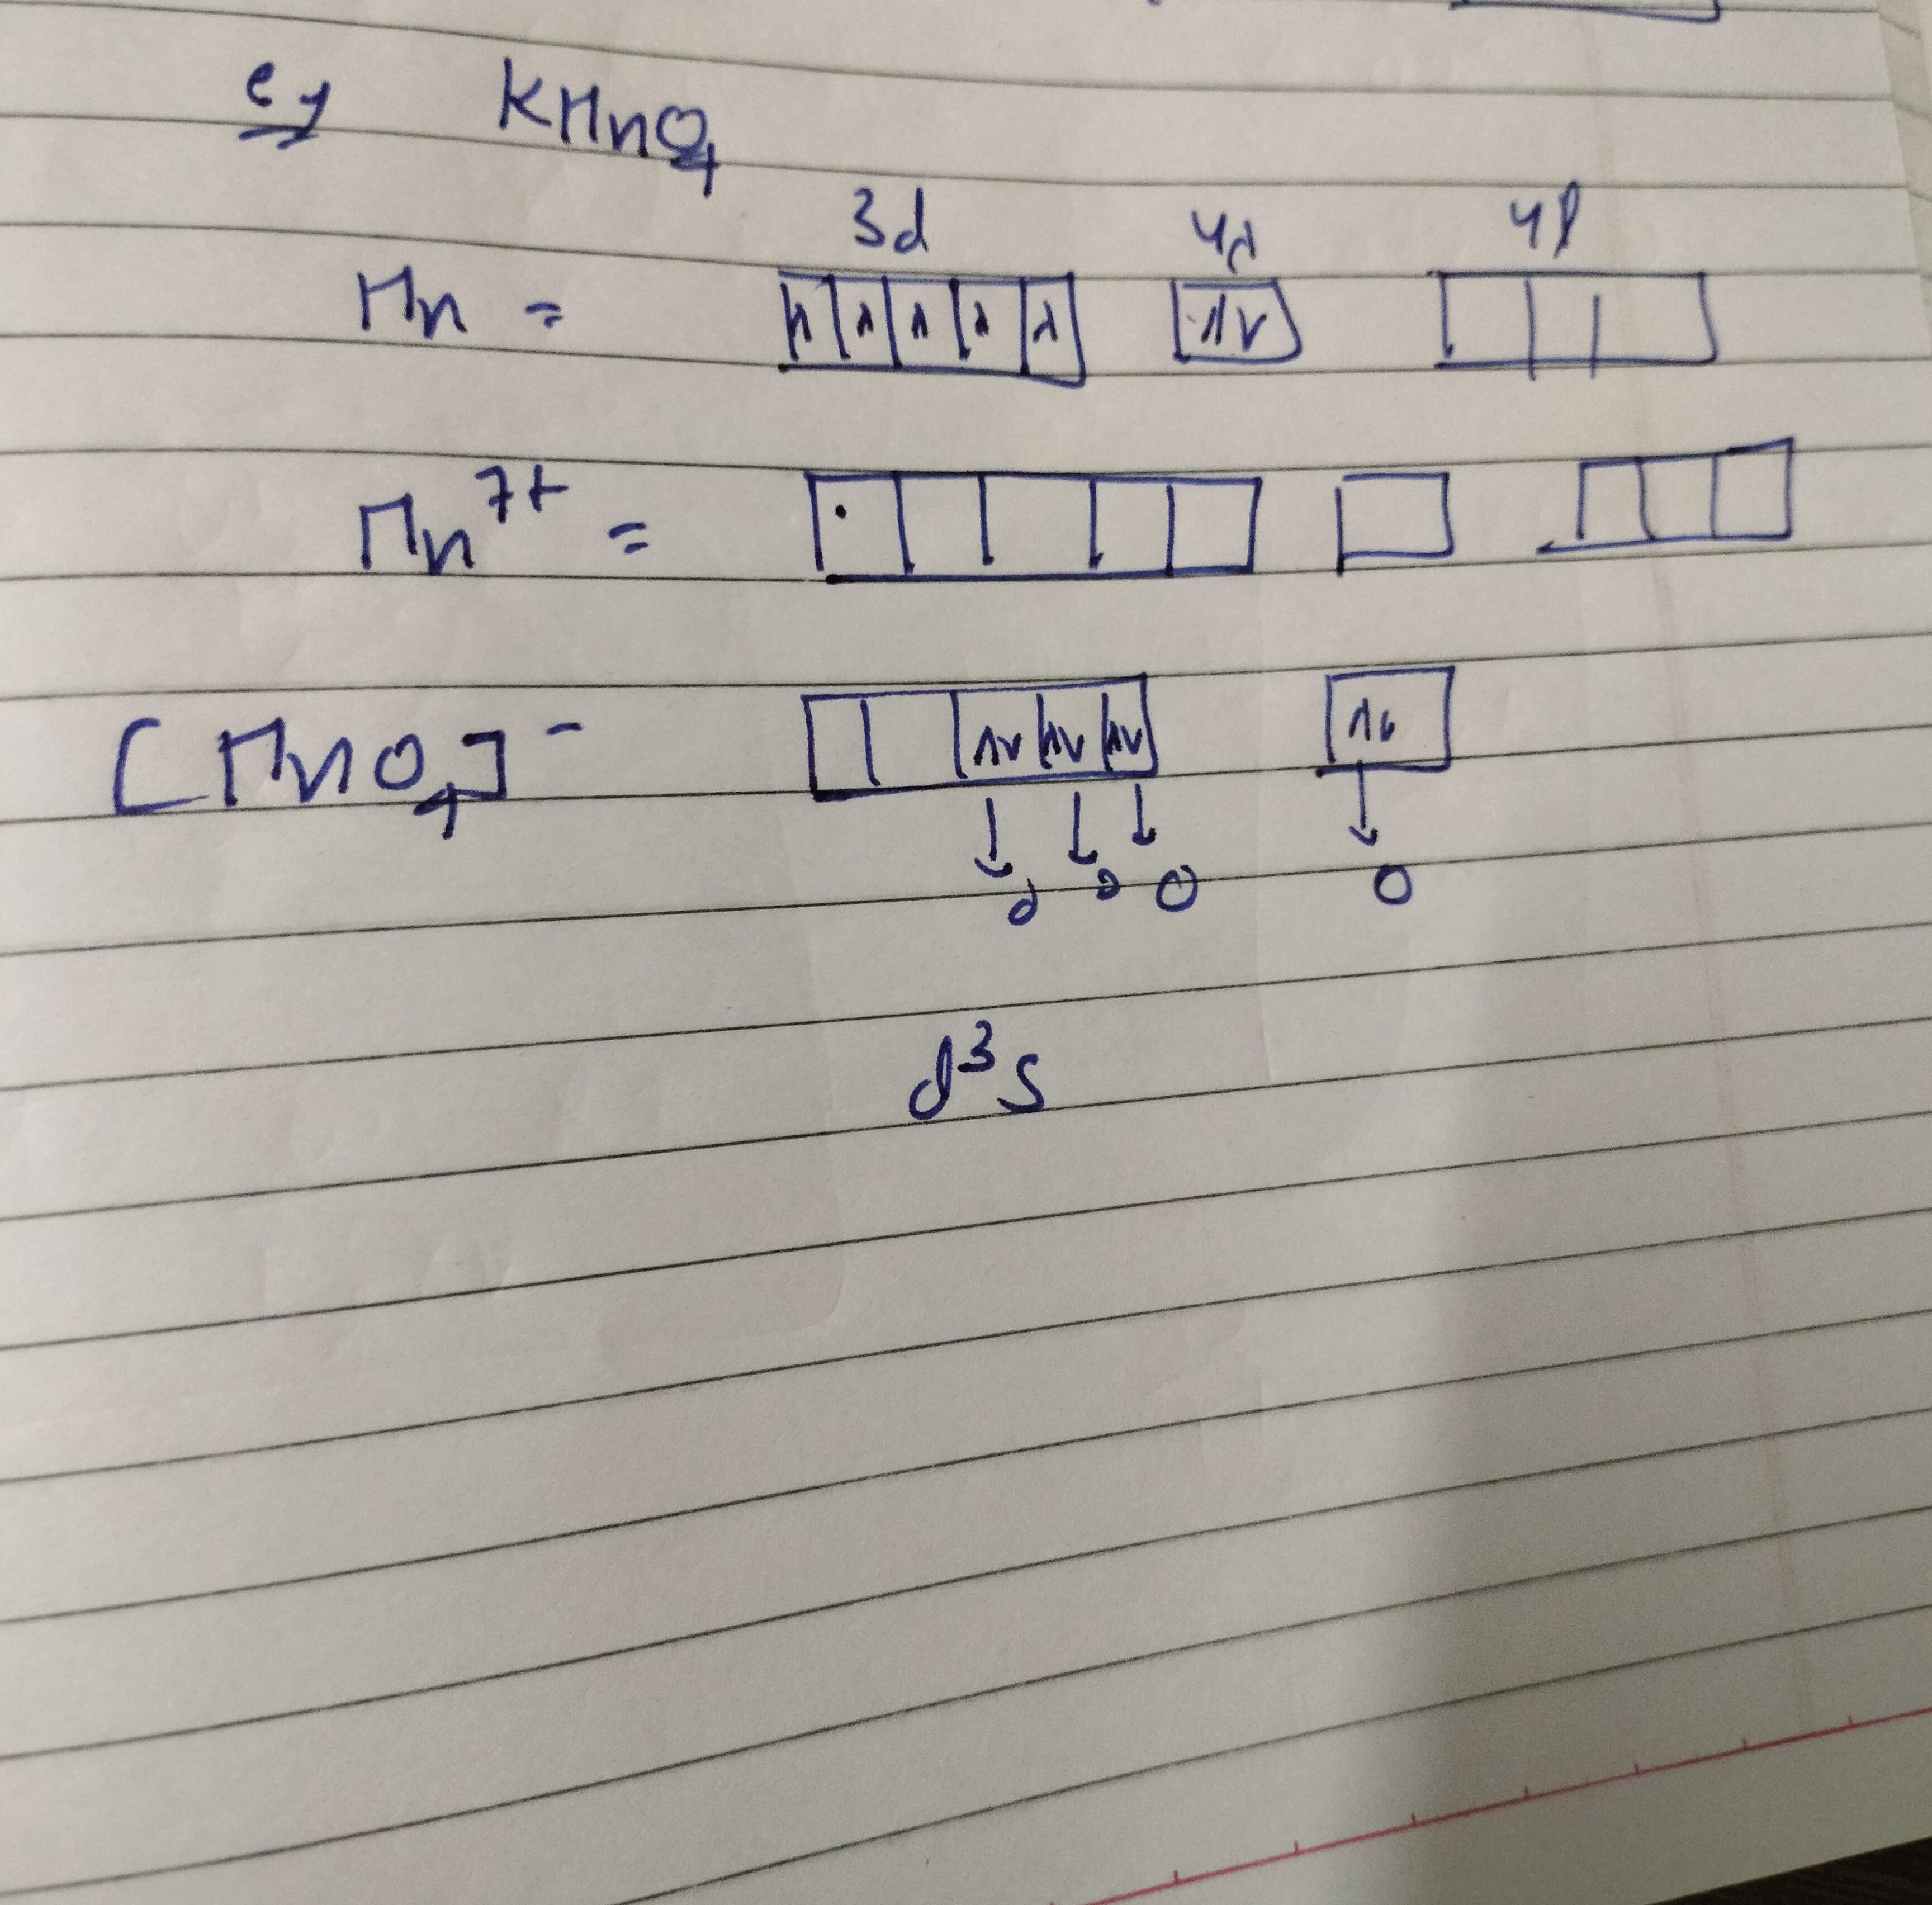 eg KMnO4
3d 4s 4p
Mn =
Mn 7+ =
[MnO4]-
O O O O
d3s